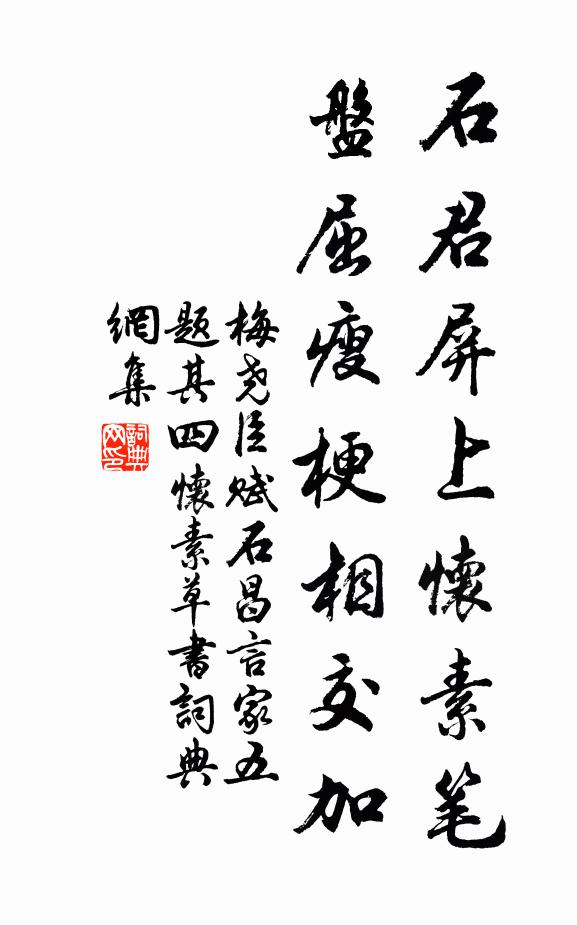 石君屏上懷素笔
盤屈瘦梗相交加
梅尧臣赋石昌言家五
题其四懷素草書詞典
網集
詞典網印